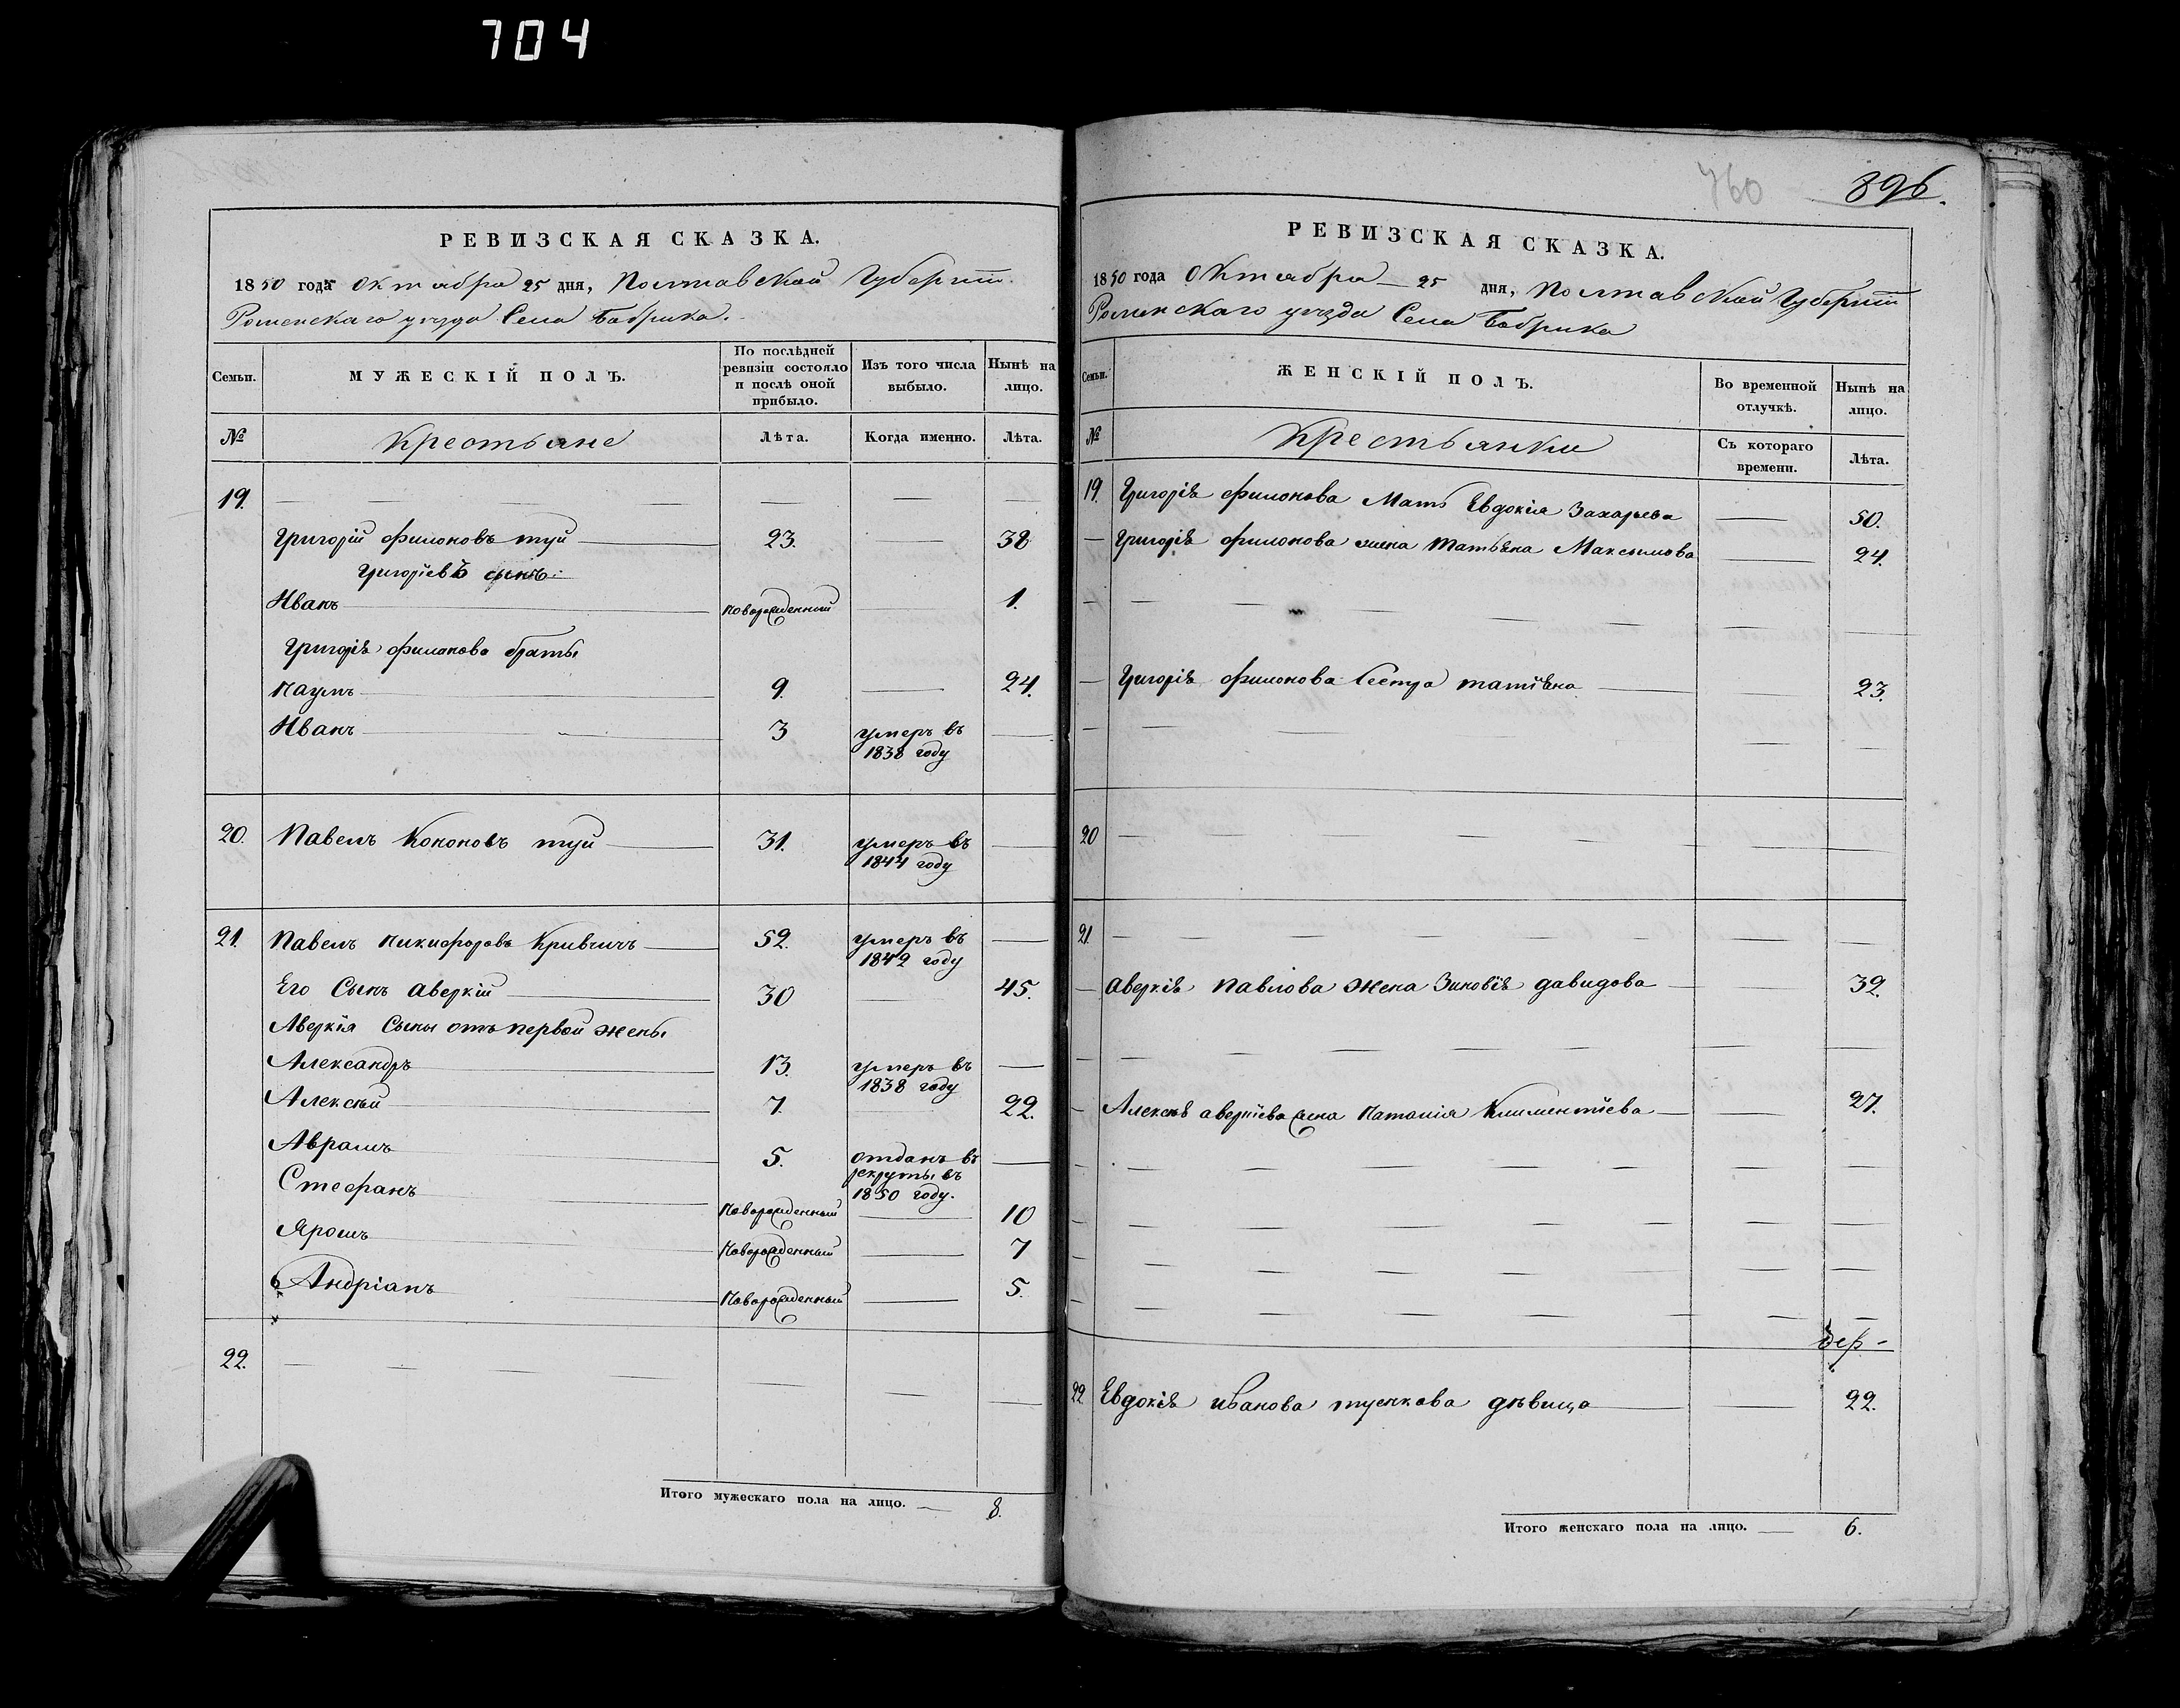 704
РЕВИЗСКАЯ СКАЗКА.
1850 года Октября 25 дня, Полтавской Губерніи
Роменскаго уезда Села Бобрика.
Семьи.
МУЖЕСКІЙ ПОЛЪ.
По послѣдней ревизіи состояло и послѣ оной прибыло.
Изъ того числа выбыло.
Нынѣ на лицо.
№
Крестьяне
Лѣта.
Когда именно.
Лѣта.
19.
Григорій Филоновъ туй 23. 38
Григоріевъ сынъ:
Иванъ новорожденный 1.
Григорія Филонова братья
Наумъ 9. 24.
Иванъ 3 умеръ въ
1838 году
20. Павелъ Кононовъ туй 31. умеръ въ
1844 году
21. Павелъ Никифоровъ Кривчичъ 52. умеръ въ
1842 году
Его Сынъ Аверкій 30 45.
Аверкія Сыны отъ первой жены
Александръ 13. умеръ въ
1838 году
Алексѣй 7. 22.
Аврамъ 5. отданъ въ
рекруты въ
1850 году.
Стефанъ Новорожденный 10
Яромъ Новорожденный 7
Андріанъ Новорожденный 5.
22.
Итого мужескаго пола на лицо. 8.
760
396.
РЕВИЗСКАЯ СКАЗКА.
1850 года Октября 25 дня, Полтавской Губерніи
Роменскаго уезда Села Бобрика
Семьи.
ЖЕНСКІЙ ПОЛЪ.
Во временной отлучкѣ.
Нынѣ на лицо.
№
Крестьянки
Съ котораго времени.
Лѣта.
19. Григорія Филонова Мать Евдокія Захарьева 50.
Григорія Филонова жена Татьяна Максимова 24.
Григорія Филонова Сестра Татіяна 23.
20
21.
Аверкія Павлова Жена Зиновія Давидова 32.
Алексѣя Аверкіева жена Наталія Климентіева 27.
22. Евдокія Иванова дѣвица 22.
Итого женскаго пола на лицо. 6.